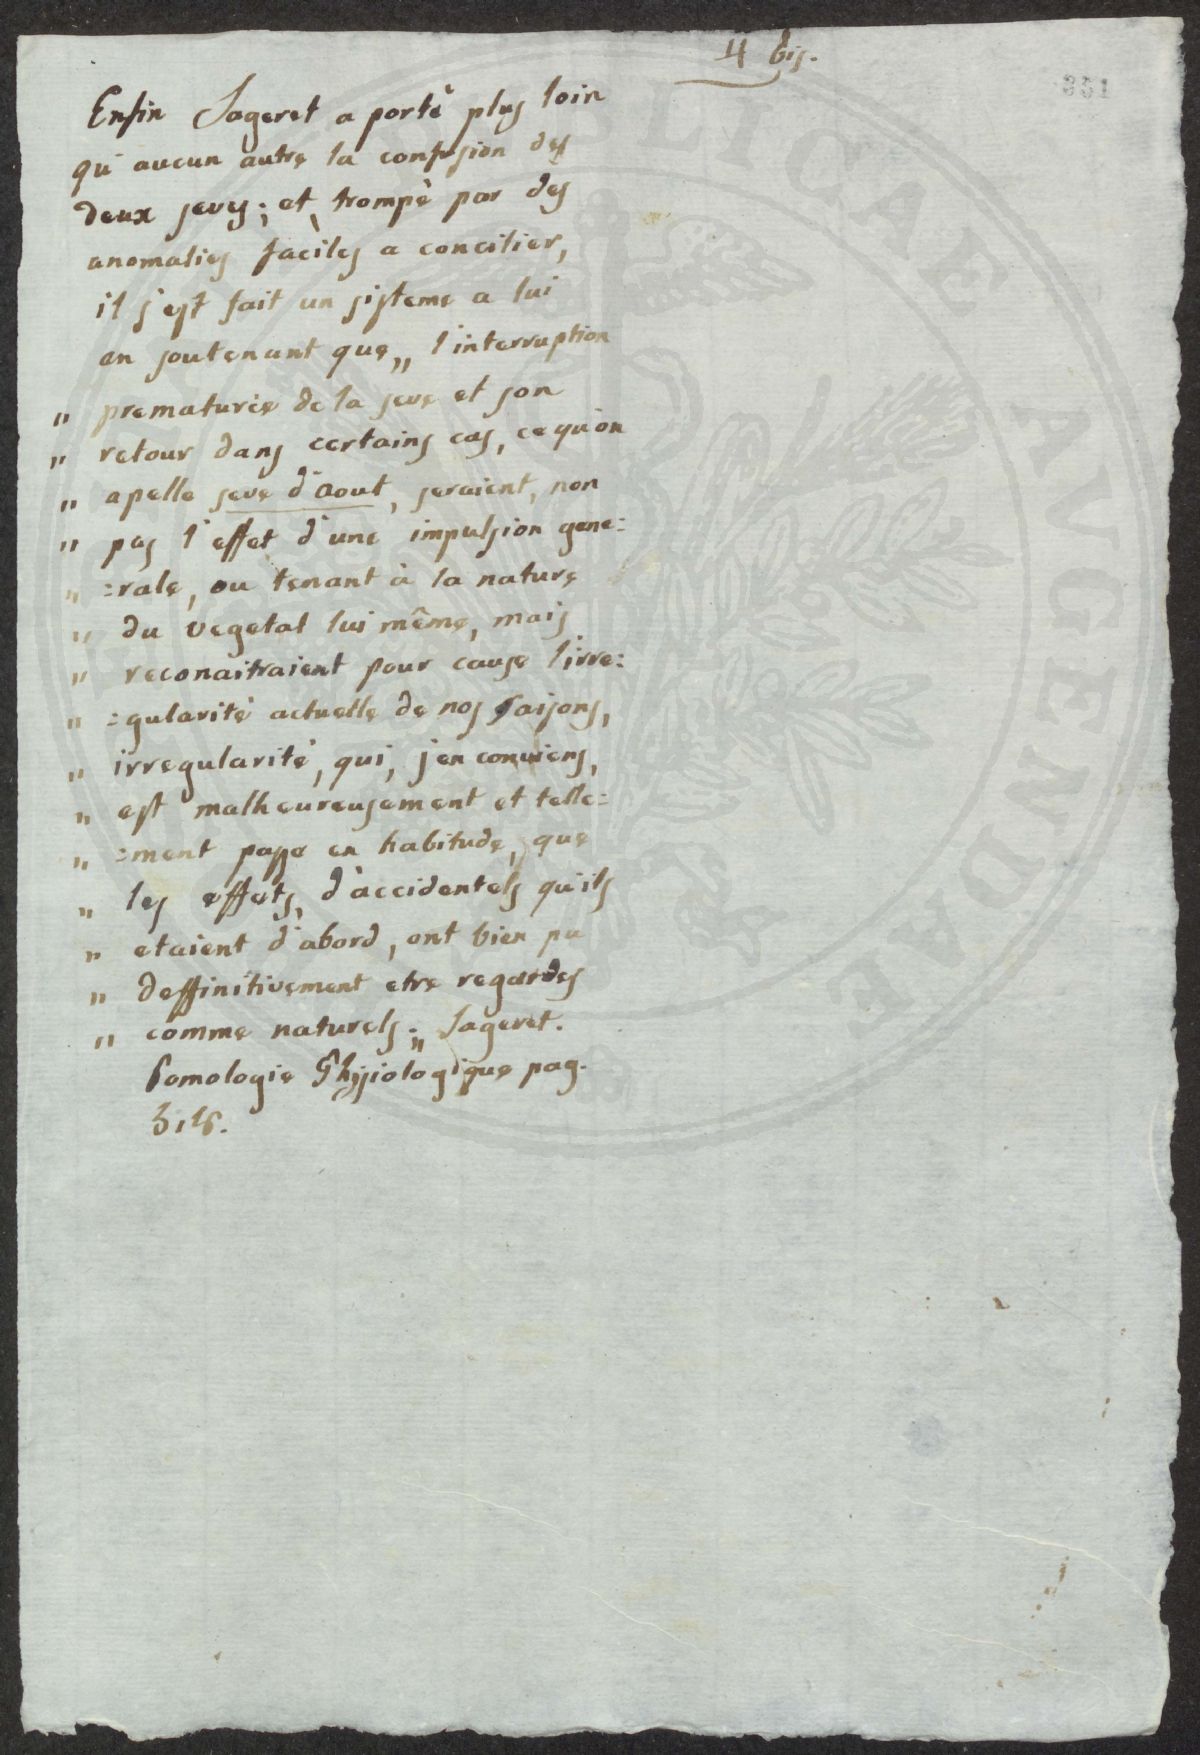 4 bis.
351
Enfin Sageret a porté plus loin
qu'aucun autre la confusion des
deux seves; et, trompé par des
anomalies faciles a concilier,
il s'est fait un sisteme a lui
en soutenant que " l'interruption
" prematurée de la seve et son
" retour dans certains cas, ce qu'on
" apelle seve d'aout, seraient, non
" pas l'effet d'une impulsion gene=
" =rale, ou tenant à la nature
" du vegetal lui même, mais
" reconaitraient pour cause l'irre=
" =gularité actuelle de nos saisons,
" irregularité, qui, j'en conviens,
" est malheureusement et telle=
" =ment passe en habitude, que
" les effets, d'accidentels qu'ils
" etaient d'abord, ont bien pu
" deffinitivement etre regardes
" comme naturels. " Sageret.
Pomologie Physiologique pag.